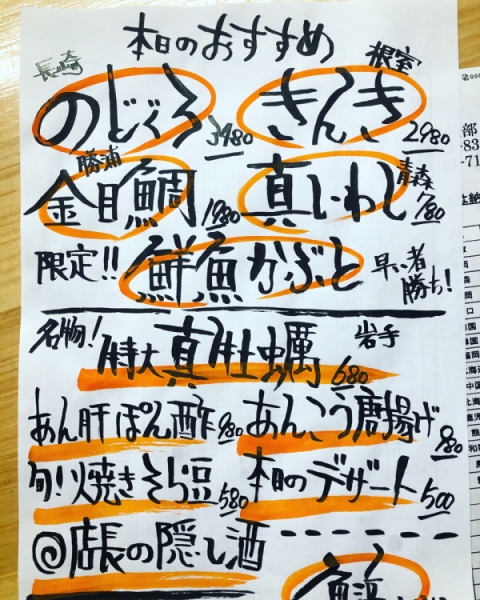 本日のおすすめ
長崎 のどぐろ 3480 根室 きんき 2980
勝浦 金目鯛 1980 真いわし 青森 780
限定!! 鮮魚かぶと 早い者勝ち!
名物! 特大真牡蠣 680 岩手
あん肝ぽん酢 980 あんこう唐揚げ 980
旬!焼きそら豆 580 本日のデザート 500
@店長の隠し酒